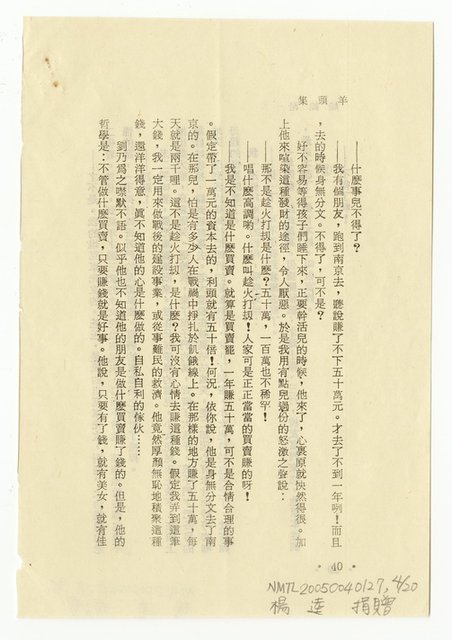 羊頭集
——什麼事兒不得了？
——我有個朋友，跑到南京去，聽說賺了不下五十萬元。才去了不到一年咧！而且
，去的時候身無分文。不得了，可不是？
好不容易等得孩子們睡下來，正要幹活兒的時候，他來了，心裏原就怏然得很。加
上他來喧染這種發財的途徑，令人厭惡。於是我用有點兒過份的怒激之聲說：
——那不是趁火打刼是什麼？五十萬，一百萬也不稀罕！
——唱什麼高調喲。什麼叫趁火打刼！人家可是正正當當的買賣賺的呀！
——我是不知道是什麼買賣。就算是買賣罷，一年賺五十萬，可不是合情合理的事
。假定帶了一萬元的資本去的，利頭就有五十倍！何況，依你說，他是身無分文去了南
京的。在那兒，怕是有多少人在戰禍中掙扎於飢餓線上。在那樣的地方賺了五十萬，每
天就是兩千哩。這不是趁火打刼，是什麼？我可沒有心情去賺這種錢。假定我弄到這筆
大錢，我一定用來做戰後的建設事業，或從事難民的救濟。他竟然厚顏無恥地積聚這種
錢，還洋洋得意，眞不知道他的心是什麼做的。自私自利的傢伙……
劉乃爲之啞默不語。似乎他也不知道他的朋友是做什麼買賣賺了錢的。但是，他的
哲學是：不管做什麼買賣，只要賺錢就是好事。他說，只要有了錢，就有美女，就有佳
•40•
NMTL20050040127, 4/20
楊逵 捐贈